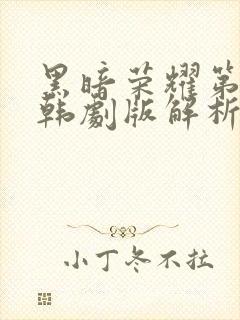 黑暗荣耀第
韩劇版解析
小丁冬不拉